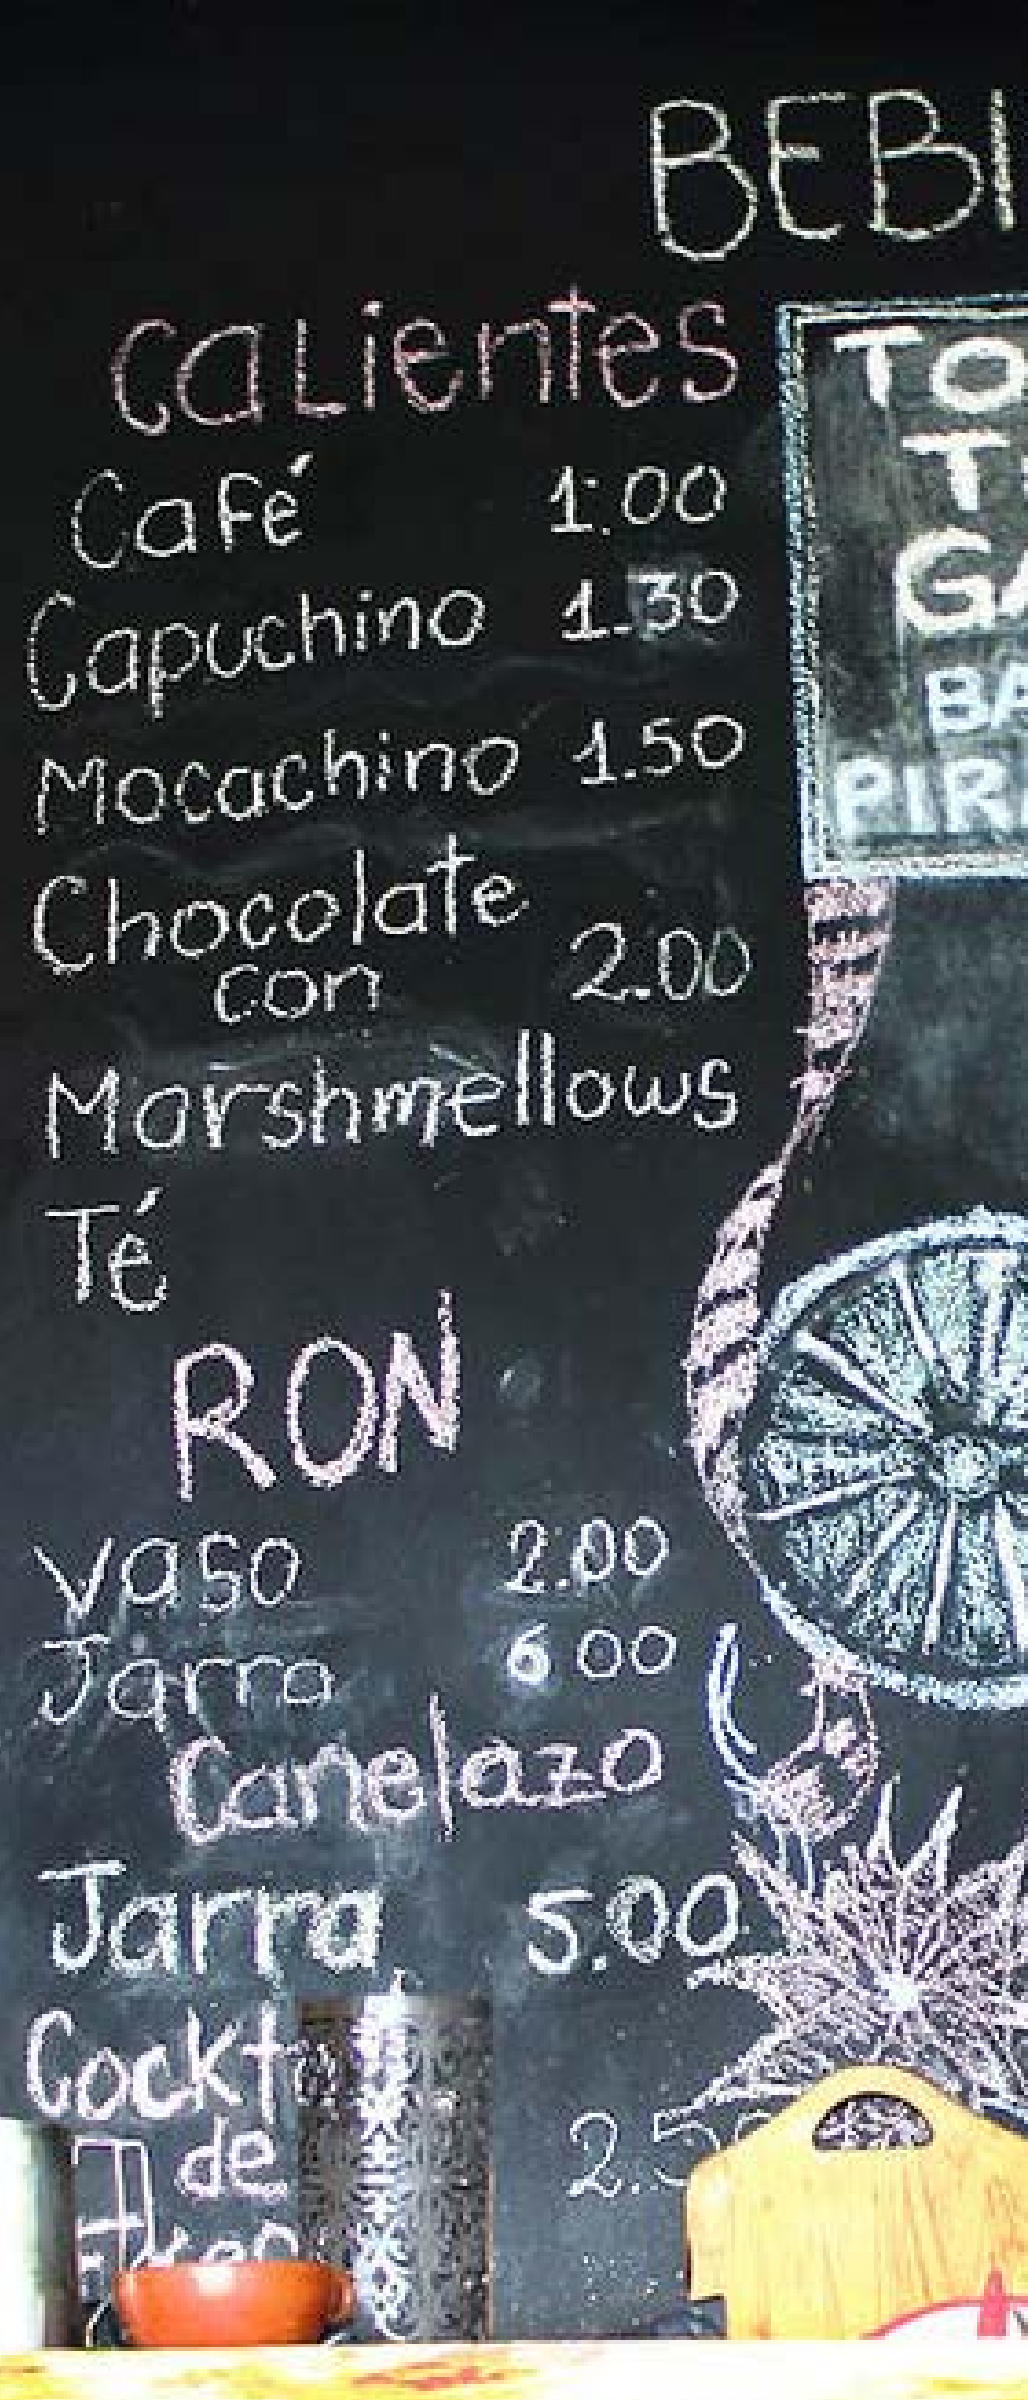 BEBI
Calientes
Café 1.00
Capuchino 1.30
Mocachino 1.50
Chocolate
con 2.00
Marshmellows
Té
RON
Vaso 2.00
Jarra 6.00
Canelazo
Jarra 5.00
Cockta
de
2.50
TO
T
GA
BA
PIR